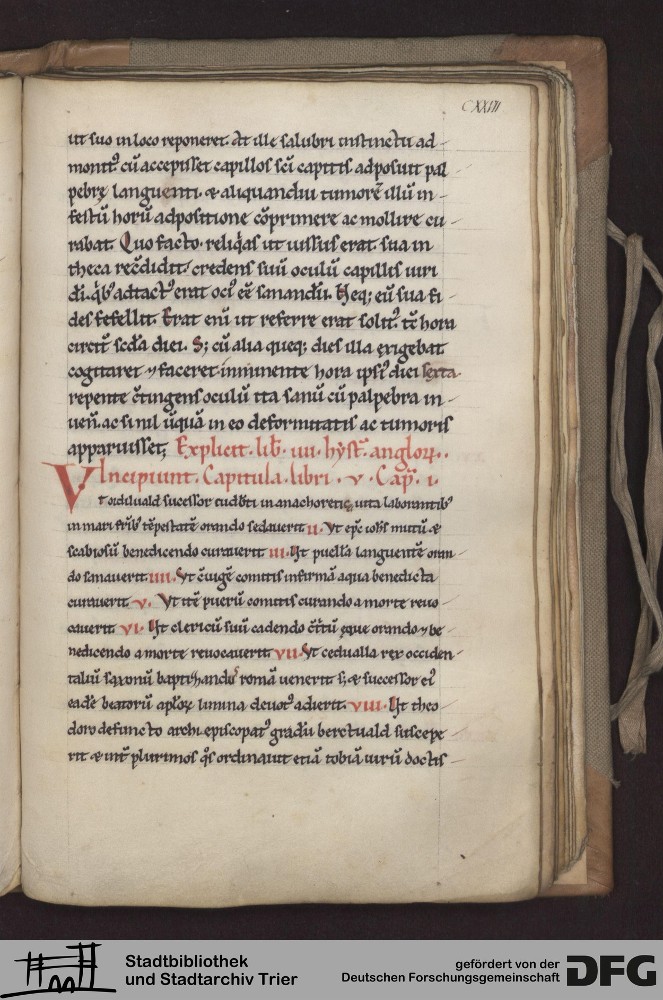 CXXVII
ut suo in loco reponeret. At ille salubri instinctu ad
monit᷒ cū accepisset capillos scī capitis adposuit pal
pebrę languenti. & aliquandiu tumorē illū in
festū horū adpositione cōprimere ac mollire cu
rabat. Quo facto. reliq̇as ut iussus erat sua in
theca recōdidit. credens suū oculū capillis uiri
dī. q̇b᷒ adtact᷒ erat oci᷒ eē sanandū. Neq; eū sua fi
des fefellit. Erat enī ut referre erat solit᷒. tc̄ hora
circit̄ scd̄a diei. S; cū alia queq; dies illa exigebat
cogitaret ⁊ faceret inminente hora ipsi᷒ diei sexta
repente c̄tingens oculū ita sanū cū palpebra in
uen̄. ac si nil ūquā in eo deformitatis ac tumoris
apparuisset; Explicit. lib̄. iiii. hyst̄. angloꝝ..
Incipiunt. Capitula. libri. v. Cap̄. i.
Vt oidiluald sucessor cudb̄ti in anachoreticę uita laborantib᷒
in mari frīb᷒ tēpestatē orando sedauerit ii. Vt ep̄c ioh̄s mutū &
scabiosū benedicendo curauerit iii. Vt puellā languentē oran
do sanauerit iiii. Vt c̄iugē comitis infirmā aqua benedicta
curauerit. v. Vt itē puerū comitis curando a morte reuo
cauerit vi. Vt clericū suū cadendo c̄tritū ęque orando ⁊ be
nedicendo a morte reuocauerit vii. Vt cedualla rex occiden
taliū saxonū baptizandus romā uenerit s; & successor ei᷒
eadē beatorū ap̄loꝝ limina deuot᷒ adierit. viii. Vt theo
doro defuncto archiepiscopat᷒ gradū berctuald suscepe
rit & int̄ plurimos q̊s ordinauit etiā tobiā uirū doctis
Stadtbibliothek
und Stadtarchiv Trier
gefördert von der
Deutschen Forschungsgemeinschaft
DFG